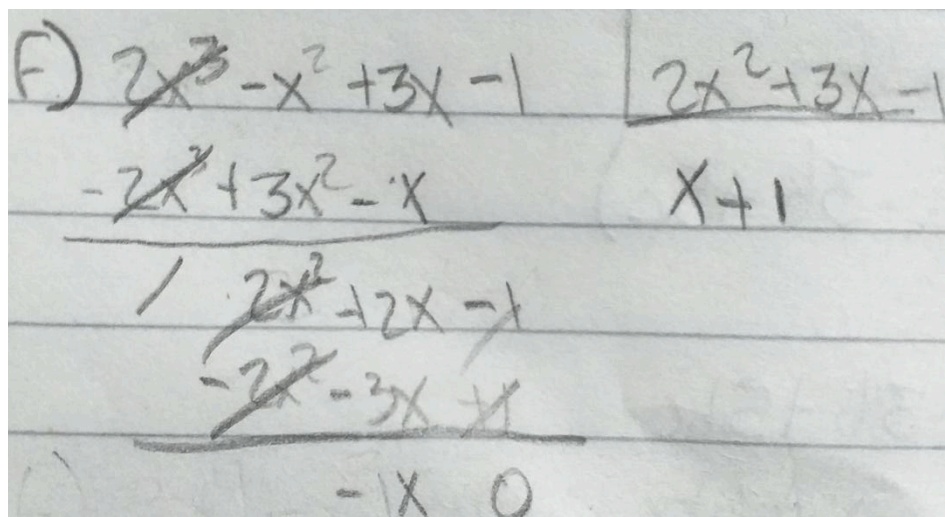 F) 2x³ - x² + 3x - 1 | 2x² + 3x - 1
- 2x³ + 3x² - x x + 1
/ 2x² + 2x - 1
- 2x² - 3x + 1
- 1x 0